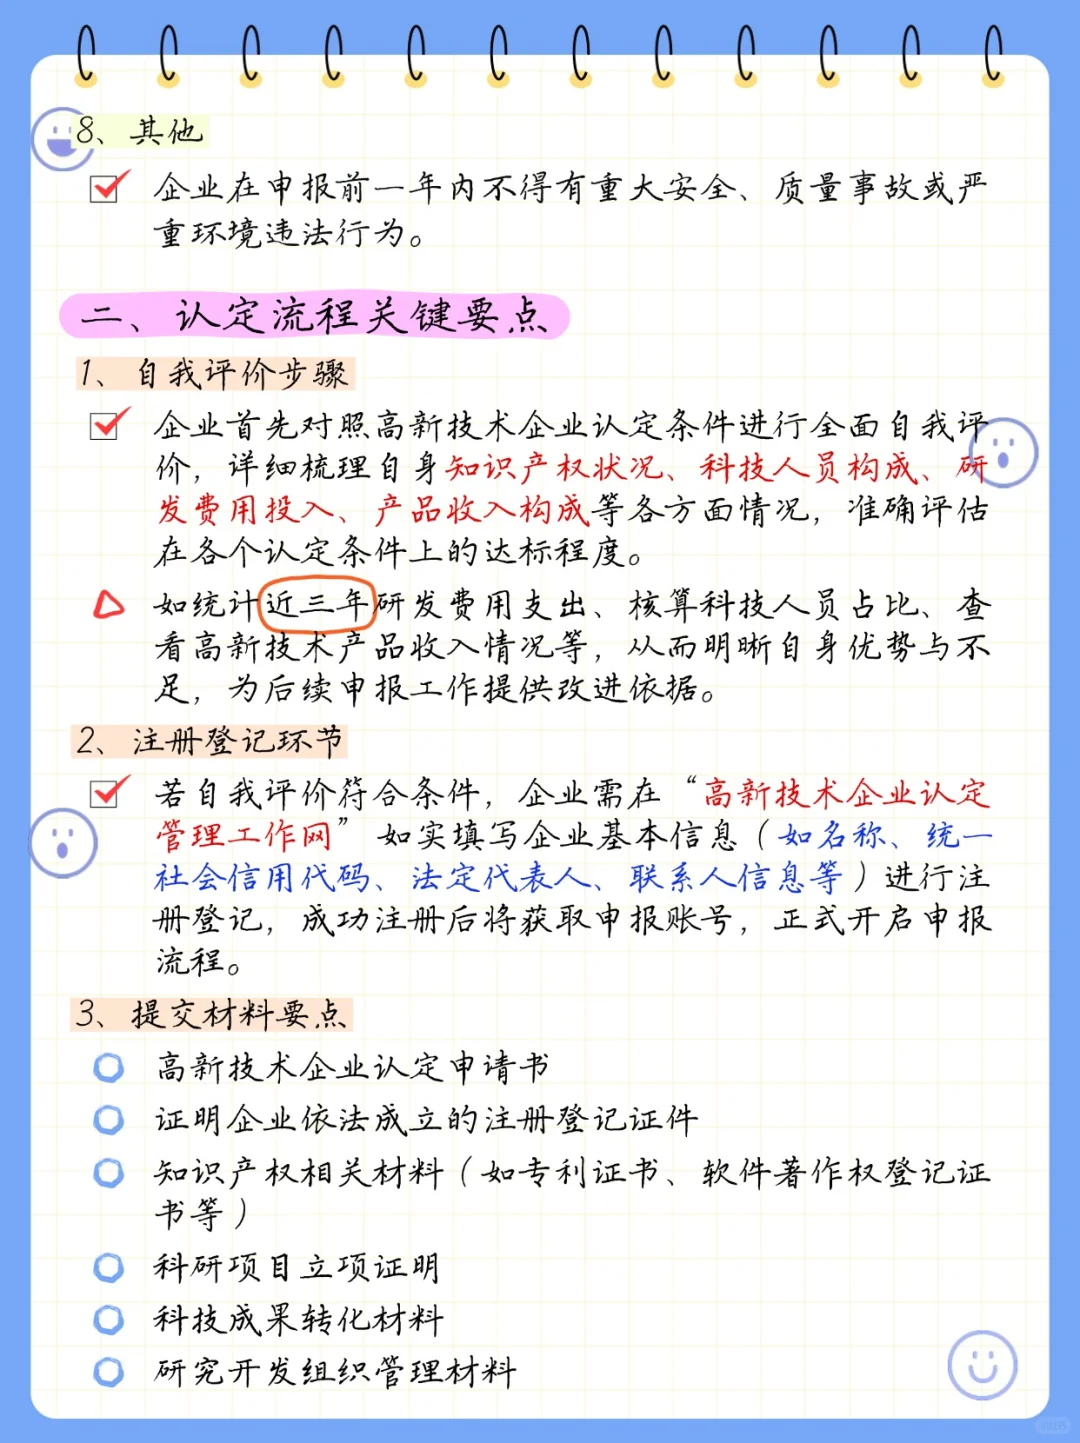 8、其他
企业在申报前一年内不得有重大安全、质量事故或严
重环境违法行为。
二、认定流程关键要点
1、自我评价步骤
企业首先对照高新技术企业认定条件进行全面自我评
价，详细梳理自身知识产权状况、科技人员构成、研
发费用投入、产品收入构成等各方面情况，准确评估
在各个认定条件上的达标程度。
如统计近三年研发费用支出、核算科技人员占比、查
看高新技术产品收入情况等，从而明晰自身优势与不
足，为后续申报工作提供改进依据。
2、注册登记环节
若自我评价符合条件，企业需在“高新技术企业认定
管理工作网”如实填写企业基本信息（如名称、统一
社会信用代码、法定代表人、联系人信息等）进行注
册登记，成功注册后将获取申报账号，正式开启申报
流程。
3、提交材料要点
高新技术企业认定申请书
证明企业依法成立的注册登记证件
知识产权相关材料（如专利证书、软件著作权登记证
书等）
科研项目立项证明
科技成果转化材料
研究开发组织管理材料